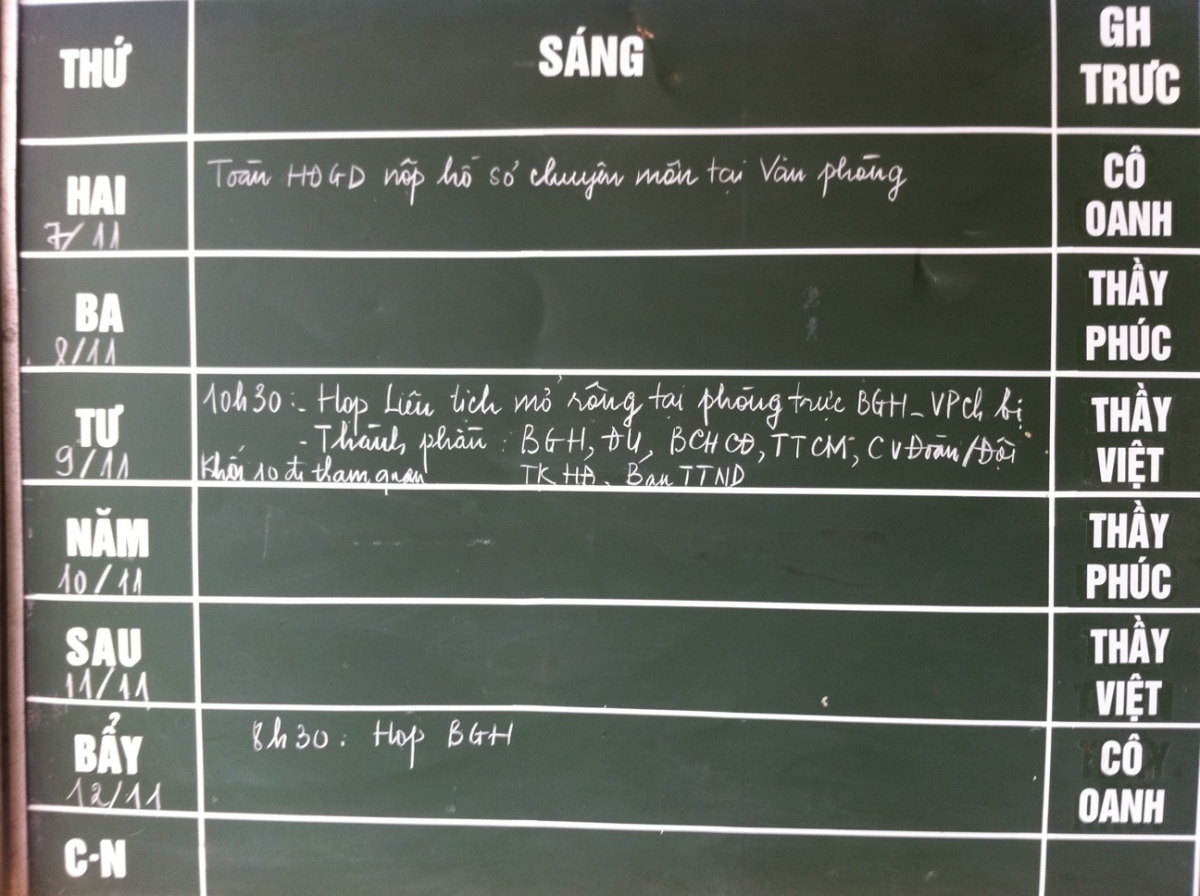 THỨ
SÁNG
GH
TRƯC
HAI
7/11
Toàn HĐGD nộp hồ sơ chuyên môn tại Văn phòng
CÔ
OANH
BA
8/11
THẦY
PHÚC
TƯ
9/11
10h30: - Họp Liên tịch mở rộng tại phòng trực BGH - VP ch bị
- Thành phần: BGH, ĐU, BCHCĐ, TTCM, CV Đoàn/Đội
Khối 10 đi tham quan TK HĐ. Ban TTND
THẦY
VIỆT
NĂM
10/11
THẦY
PHÚC
SAU
11/11
THẦY
VIỆT
BẨY
12/11
8h30: Họp BGH
CÔ
OANH
C-N